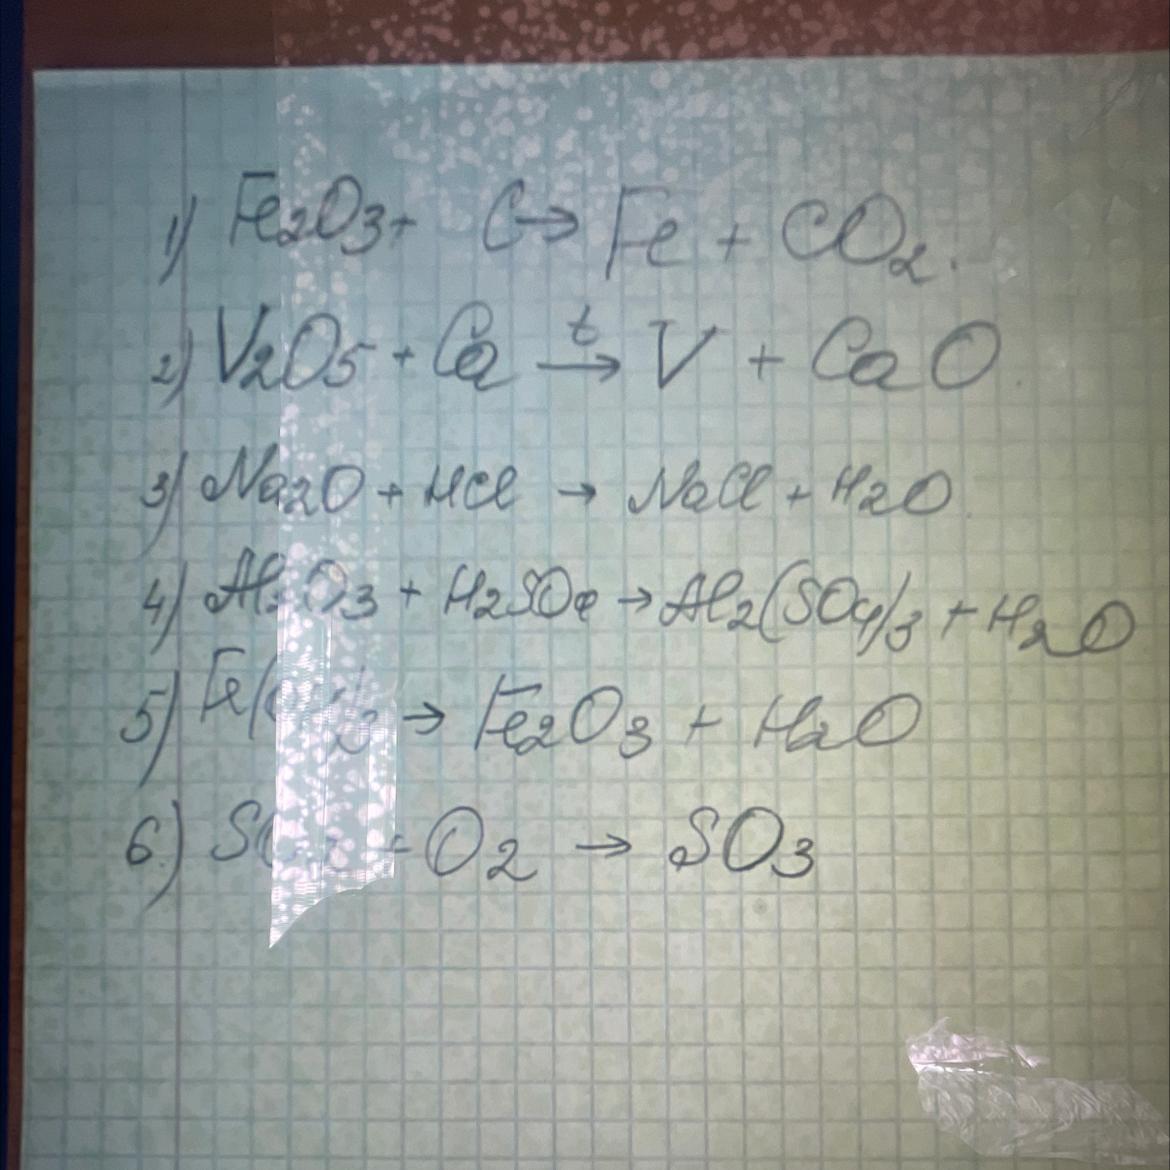 1) Fe2O3 + C → Fe + CO2.
2) V2O5 + Ca t → V + CaO.
3) Na2O + HCl → NaCl + H2O.
4) Al2O3 + H2SO4 → Al2(SO4)3 + H2O
5) → Fe2O3 + H2O
6.) + O2 → SO3